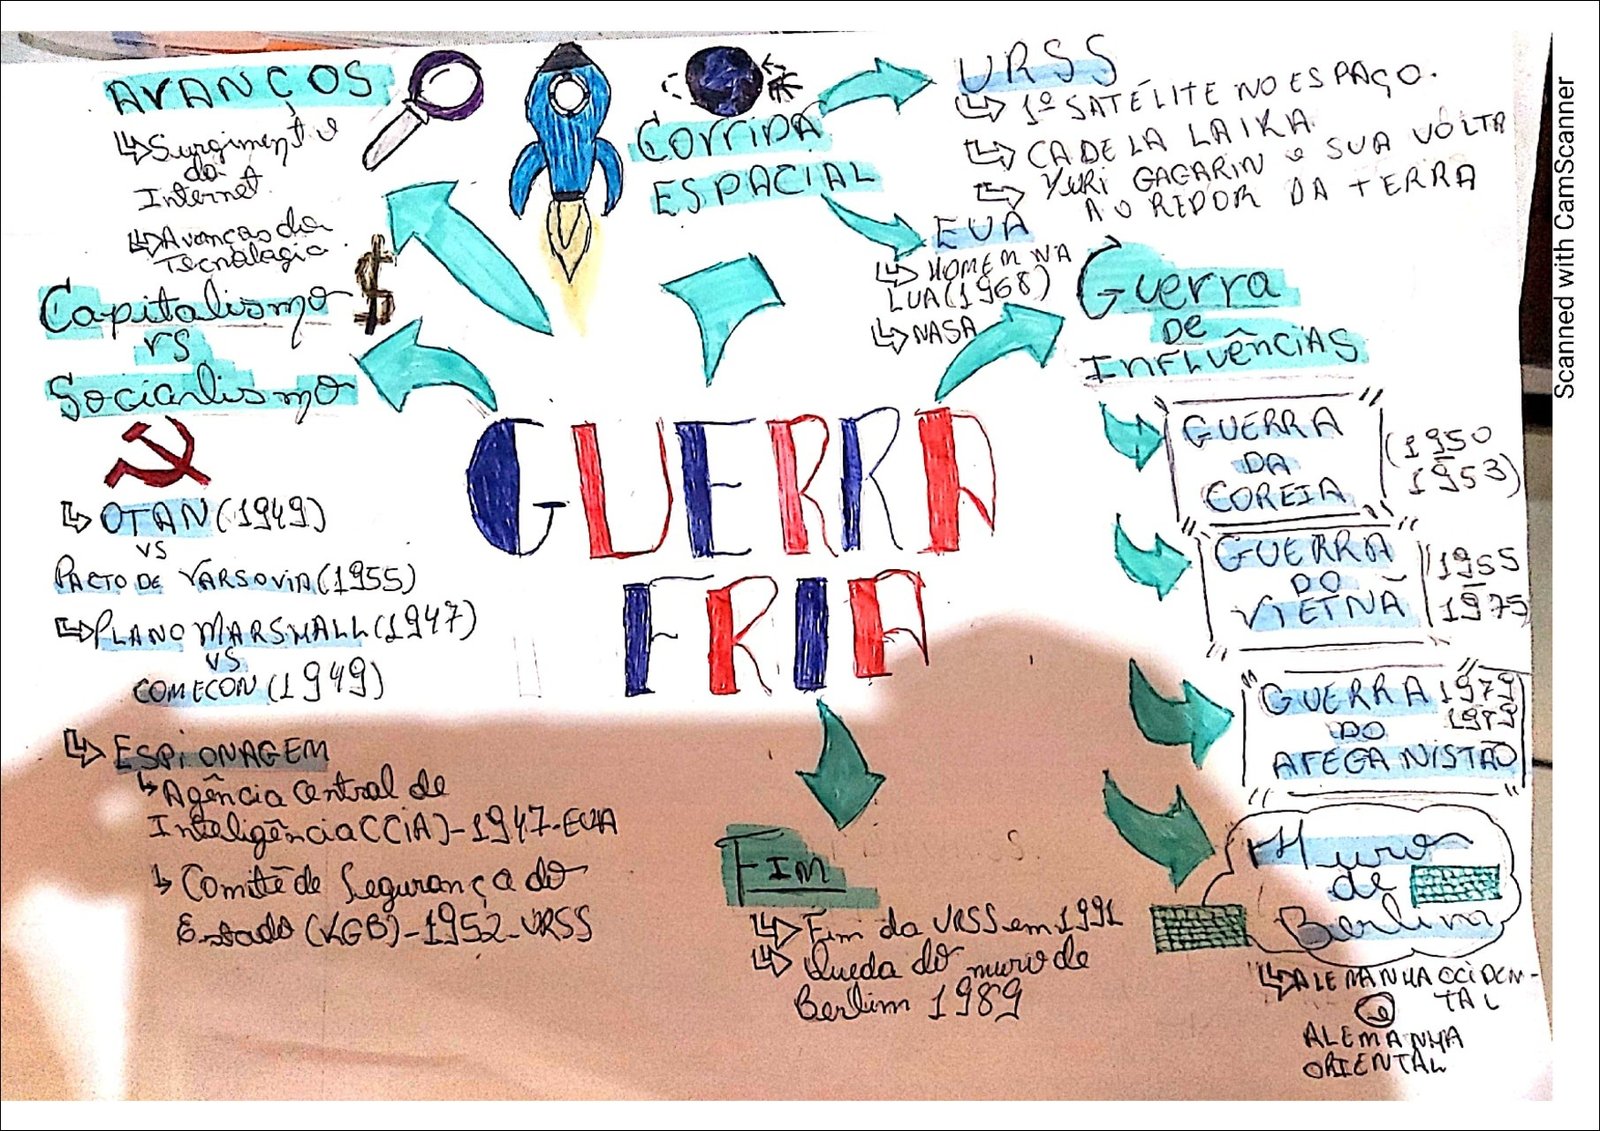 AVANÇOS
Surgimento
do
Internet
Avanços da
Tecnologia
Capitalismo $
VS
Socialismo
OTAN (1949)
VS
PACTO DE VARSOVIA (1955)
PLANO MARSHALL (1947)
VS
COMECON (1949)
ESPIONAGEM
Agência Central de
Inteligência (CIA) - 1947 - EUA
Comitê de Segurança do
Estado (KGB) - 1952 - URSS
CORRIDA
ESPACIAL
URSS
1º SATÉLITE NO ESPAÇO.
CADELA LAIKA
YURI GAGARIN e SUA VOLTA
AO REDOR DA TERRA
EUA
HOMEM NA
LUA (1968)
NASA
GUERRA
FRIA
Guerra
DE
INFLUÊNCIAS
GUERRA
DA
COREIA
(1950
1953)
GUERRA
DO
VIETNÃ
1955
1975
GUERRA 1979
DO 1989
AFEGANISTÃO
Muro
de
Berlim
ALEMANHA OCIDEN-
TAL
e
ALEMANHA
ORIENTAL
FIM
Fim da URSS em 1991
Queda do muro de
Berlim 1989
Scanned with CamScanner